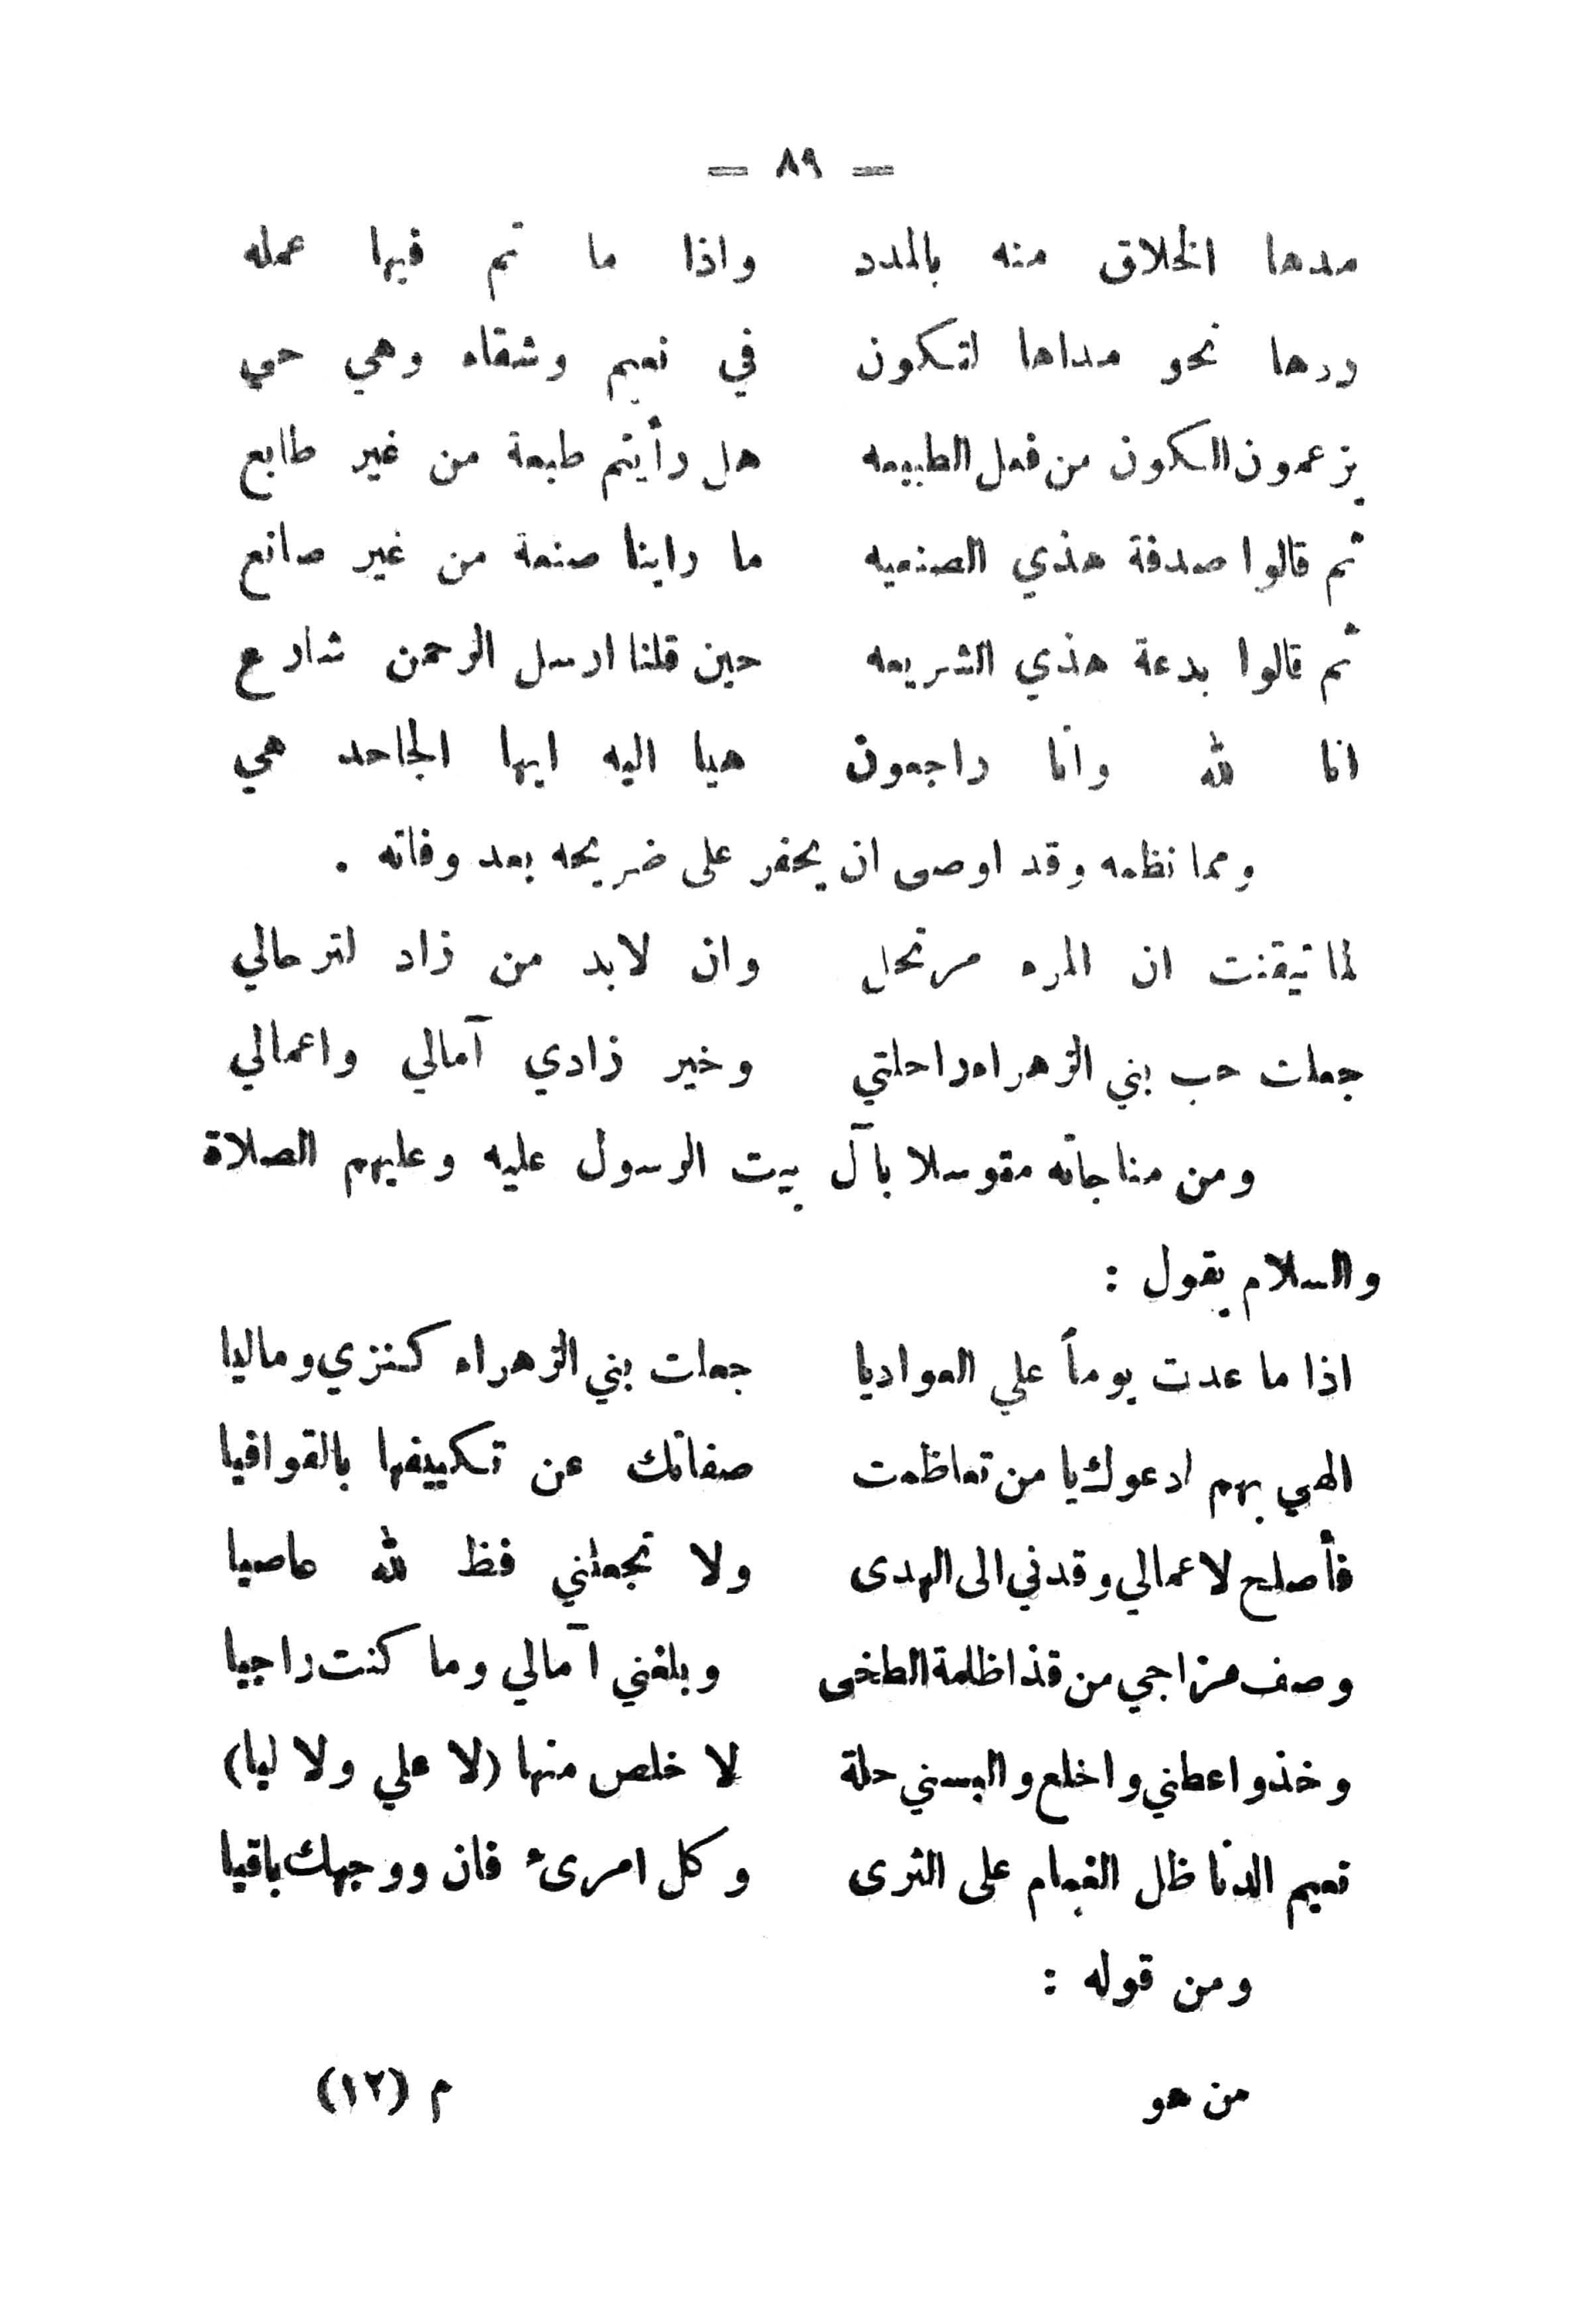 = ٨٩ =
مدها الخلاق منه بالمدد واذا ما تم فيها عمله
ردها نحو مداها لتكون في نعيم وشقاه وهي حي
يزعمون الكون من فعل الطبيعه هل رأيتم طبعة من غير طابع
ثم قالوا صدفة هذي الصنعيه ما راينا صنعة من غير صانع
ثم قالوا بدعة هذي الشريعه حين قلنا ارسل الرحمن شارع
انا لله وانا راجعون هيا اليه ايها الجاحد هي
ومما نظمه وقد اوصى ان يحفر على ضريحه بعد وفاته .
لما تيقنت ان المره مرتحل وان لابد من زاد لترحالي
جعلت حب بني الزهراء راحلتي وخير زادي آمالي واعمالي
ومن مناجاته متوسلا بآل بيت الرسول عليه وعليهم الصلاة
والسلام يقول :
اذا ما عدت يوماً علي العواديا جعلت بني الزهراء كنزي وماليا
الهي بهم ادعوك يا من تعاظمت صفاتك عن تكييفها بالقوافيا
فأصلح لاعمالي وقدني الى الهدى ولا تجعلني فظ لله عاصيا
وصف مزاجي من قذا ظلمة الطخى وبلغني آمالي وما كنت راجيا
وخذو اعطني واخلع والبسني حلة لا خلص منها (لا علي ولا ليا)
نعيم الدنا ظل الغمام على الثرى وكل امرئ فان ووجهك باقيا
ومن قوله :
من هو م (١٢)